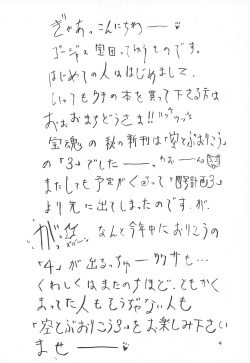 ぎゃあっ。こんにちわ――♥
ゴージャス宝田っていうものです。
はじめての人ははじめまして、
いつもウチの本を買って下さる方は
おおおまちどうさま!!
宝魂の秋の新刊は「空とぶおりこう」
の「3」でした――。わぉ――ん
またしても予定がくるって「野望計画3」
より先に出てしまったのです。が、
がっ☆ なんと今年中におりこうの
「4」が出るっちゅー
くわしくはまたのちほど、ともかく
まってた人もそうぢゃない人も
「空とぶおりこう3」をお楽しみ下さい
ませ――♥
4